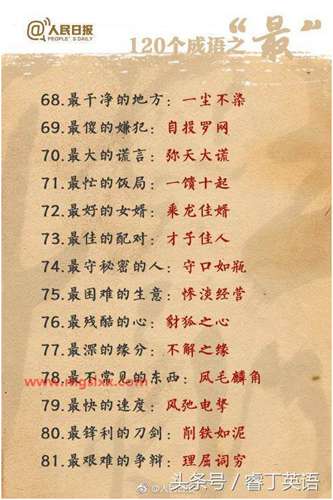 @人民日报
PEOPLE'S DAILY
120个成语之“最”
68.最干净的地方：一尘不染
69.最傻的嫌犯：自投罗网
70.最大的谎言：弥天大谎
71.最忙的饭局：一馈十起
72.最好的女婿：乘龙佳婿
73.最佳的配对：才子佳人
74.最守秘密的人：守口如瓶
75.最困难的生意：惨淡经营
76.最残酷的心：豺狐之心
77.最深的缘分：不解之缘
78.最不常见的东西：凤毛麟角
79.最快的速度：风驰电掣
80.最锋利的刀剑：削铁如泥
81.最艰难的争辩：理屈词穷
@人民日报
头条号 / 睿丁英语